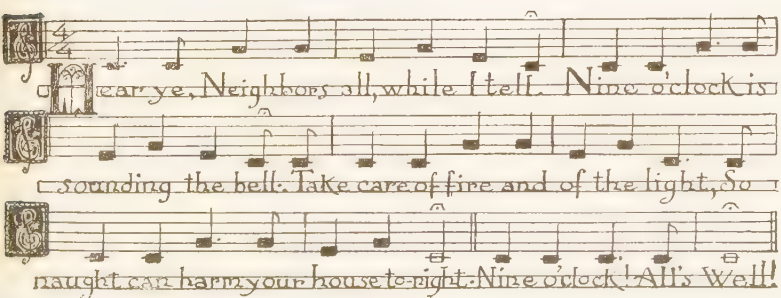 4/4
Hear ye, Neighbors all, while I tell. Nine o'clock is
sounding the bell. Take care of fire and of the light, So
naught can harm your house to-night. Nine o'clock! All's Well!